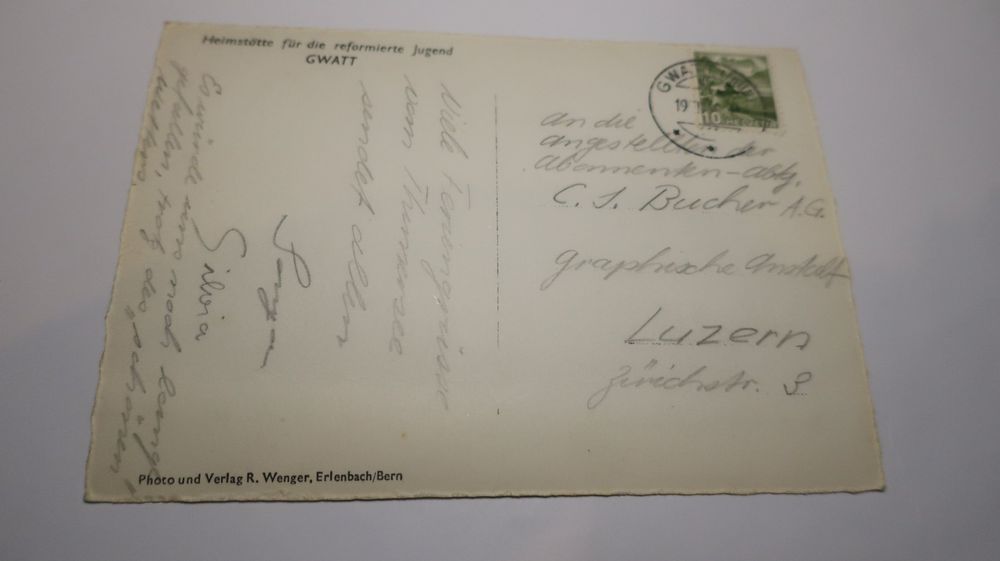 Heimstätte für die reformierte Jugend
GWATT
Viele Feriengrüsse
vom Thunersee
sendet allen
Silvia
Es würde uns noch lange
gefallen, trotz des "schönen"
An die
Angestellten der
Abonnenten-Abtg.
C. J. Bucher A.G.
Graphische Anstalt
Luzern
Zürichstr. 3
GWATT
19
10
HELVETIA
Photo und Verlag R. Wenger, Erlenbach/Bern